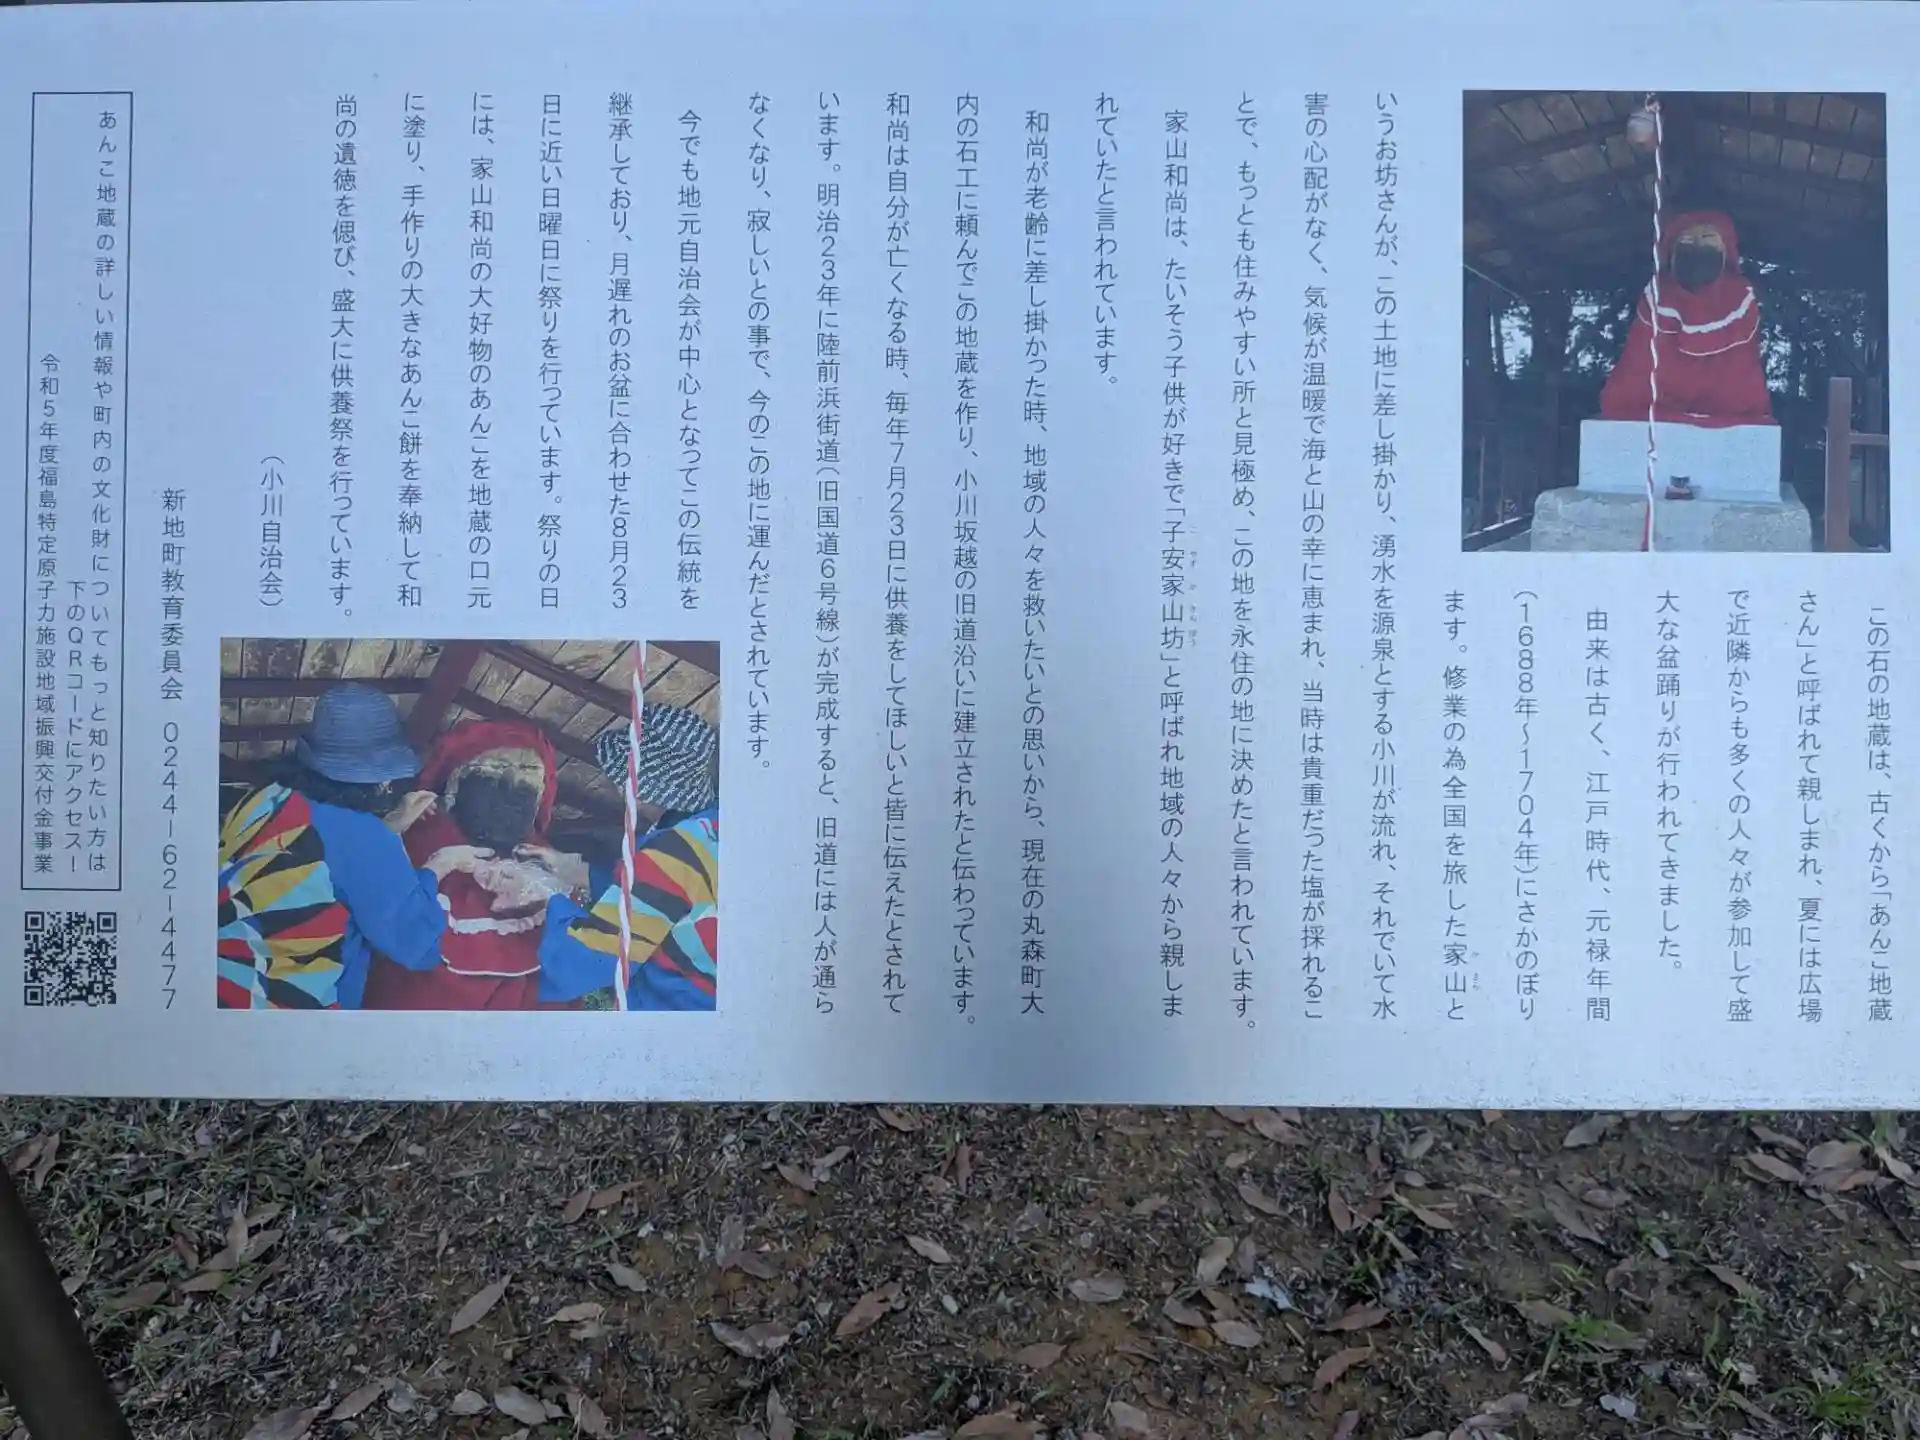 この石の地蔵は、古くから「あんこ地蔵
さん」と呼ばれて親しまれ、夏には広場
で近隣からも多くの人々が参加して盛
大な盆踊りが行われてきました。
由来は古く、江戸時代、元禄年間
（1688年～1704年）にさかのぼり
ます。修業の為全国を旅した家山と
いうお坊さんが、この土地に差し掛かり、湧水を源泉とする小川が流れ、それでいて水
害の心配がなく、気候が温暖で海と山の幸に恵まれ、当時は貴重だった塩が採れるこ
とで、もっとも住みやすい所と見極め、この地を永住の地に決めたと言われています。
家山和尚は、たいそう子供が好きで「子安家山坊」と呼ばれ地域の人々から親しま
れていたと言われています。
和尚が老齢に差し掛かった時、地域の人々を救いたいとの思いから、現在の丸森町大
内の石工に頼んでこの地蔵を作り、小川坂越の旧道沿いに建立されたと伝わっています。
和尚は自分が亡くなる時、毎年7月23日に供養をしてほしいと皆に伝えたとされて
います。明治23年に陸前浜街道（旧国道6号線）が完成すると、旧道には人が通ら
なくなり、寂しいとの事で、今のこの地に運んだとされています。
今でも地元自治会が中心となってこの伝統を
継承しており、月遅れのお盆に合わせた8月23
日に近い日曜日に祭りを行っています。祭りの日
には、家山和尚の大好物のあんこを地蔵の口元
に塗り、手作りの大きなあんこ餅を奉納して和
尚の遺徳を偲び、盛大に供養祭を行っています。
（小川自治会）
新地町教育委員会　0244－62－4477
あんこ地蔵の詳しい情報や町内の文化財についてもっと知りたい方は
下のQRコードにアクセス！
令和5年度福島特定原子力施設地域振興交付金事業